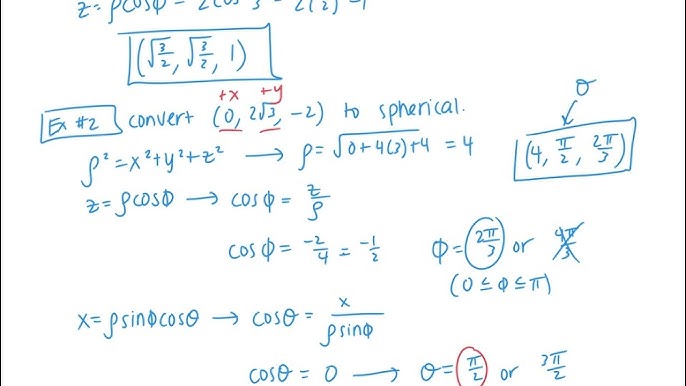 z = ρcosφ = 2cos π/3 = 2(1/2) = 1
(√(3/2), √(3/2), 1)
+x +y
θ
Ex #2 convert (0, 2√3, -2) to spherical.
ρ² = x² + y² + z² → ρ = √(0 + 4(3) + 4) = 4
(4, π/2, 2π/3)
z = ρcosφ → cosφ = z/ρ
cosφ = -2/4 = -1/2 φ = 2π/3 or 4π/3
(0 ≤ φ ≤ π)
x = ρsinφcosθ → cosθ = x/(ρsinφ)
cosθ = 0 → θ = π/2 or 3π/2